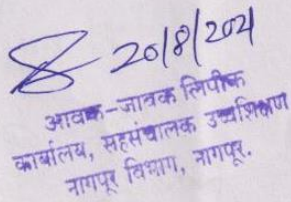 20/8/2021
आवक-जावक लिपीक
कार्यालय, सहसंचालक उच्चशिक्षण
नागपूर विभाग, नागपूर.